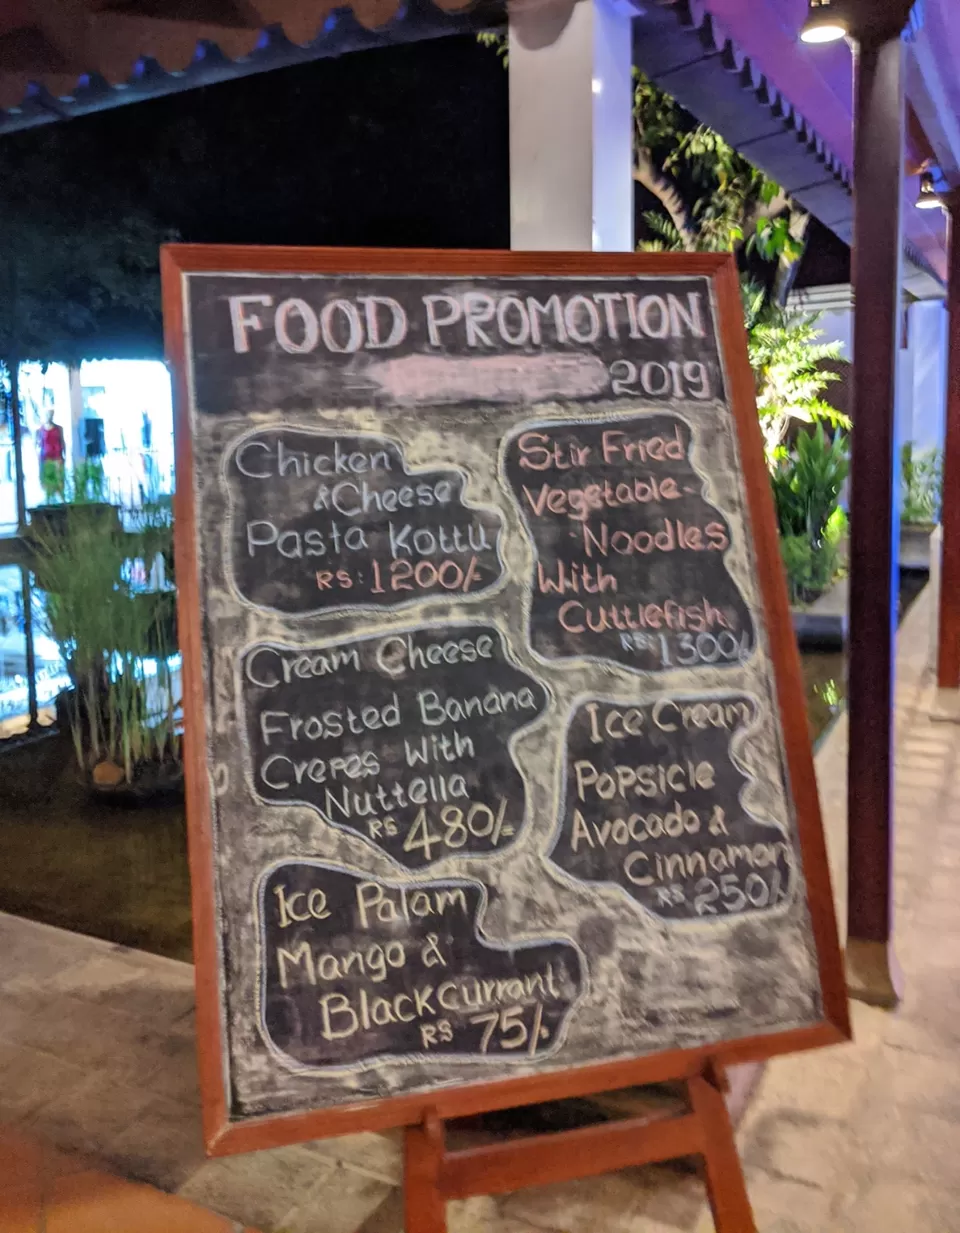 FOOD PROMOTION
2019
Chicken
& Cheese
Pasta Kottu
RS: 1200/-
Stir Fried
Vegetable-
Noodles
With
Cuttlefish
RS: 1300/-
Cream Cheese
Frosted Banana
Crepes With
Nuttella
RS 480/=
Ice Cream
Popsicle
Avocado &
Cinnamon
RS 250/-
Ice Palam
Mango &
Blackcurrant
RS 75/-